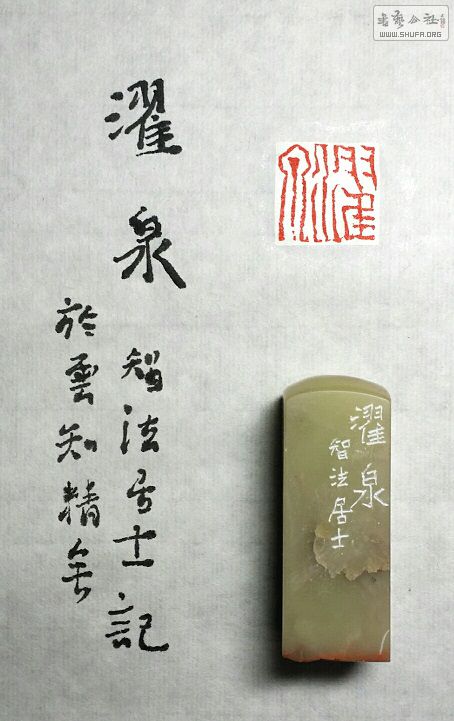 濯泉
智法居士記
於雲知精舍
濯泉
濯泉
智法居士
書藝公社
WWW.SHUFA.ORG